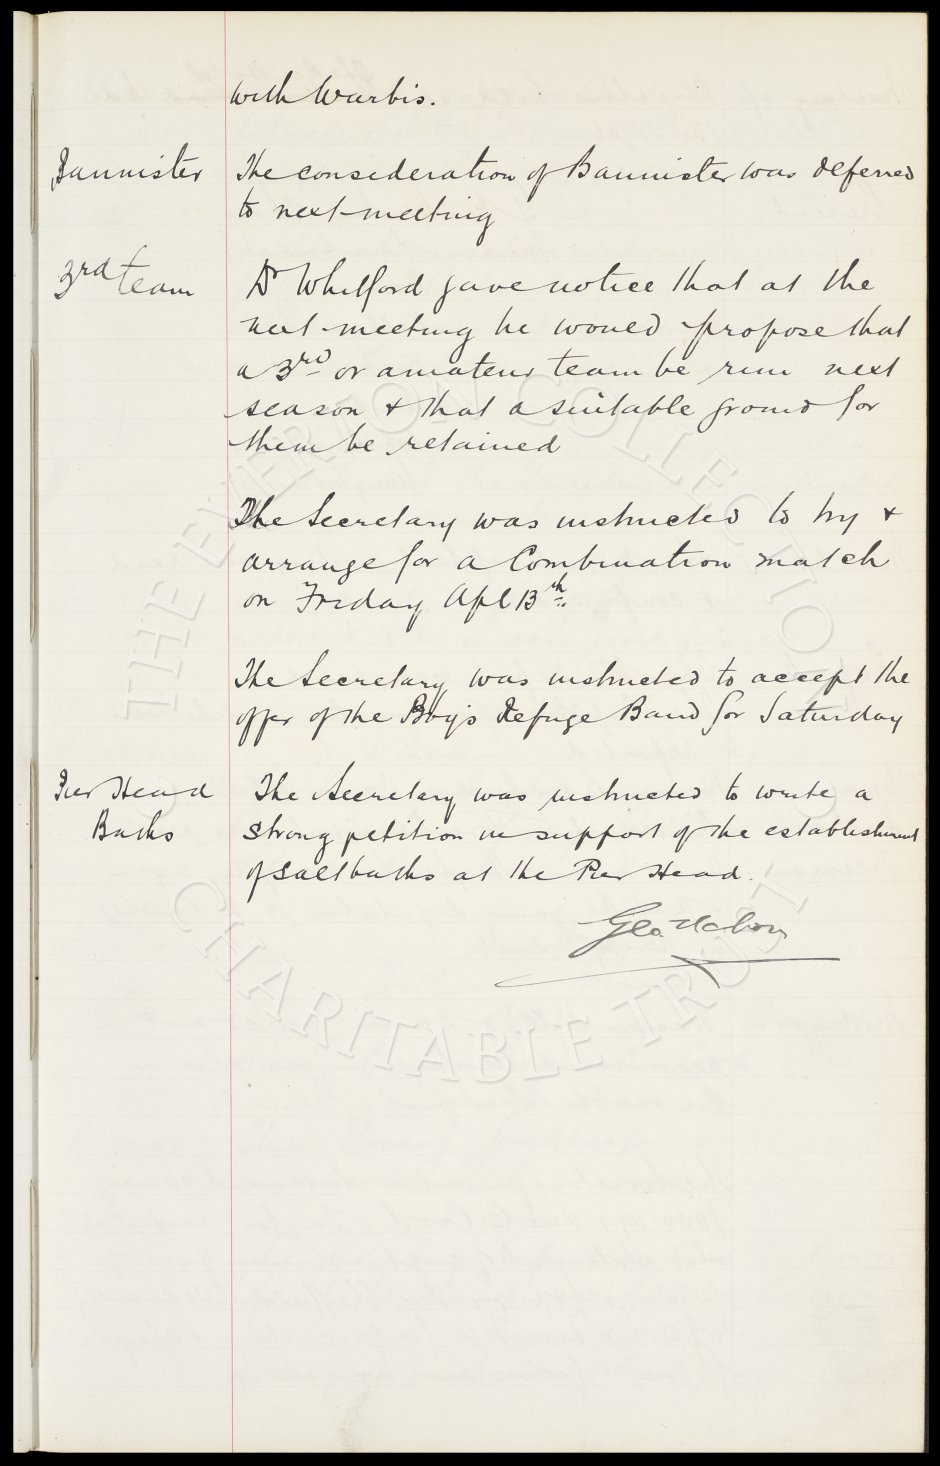 with Warbis.
Bannister
The consideration of Bannister was deferred
to next meeting
3rd team
Dr Whitford gave notice that at the
next meeting he would propose that
a 3rd or amateur team be run next
season & that a suitable ground for
them be retained
The Secretary was instructed to try &
arrange for a Combination match
on Friday Apl 13th.
The Secretary was instructed to accept the
offer of the Boys Refuge Band for Saturday
Pier Head
Baths
The Secretary was instructed to write a
strong petition in support of the establishment
of salt baths at the Pier Head.
Geo. Mahon
THE EVERTON COLLECTION
CHARITABLE TRUST